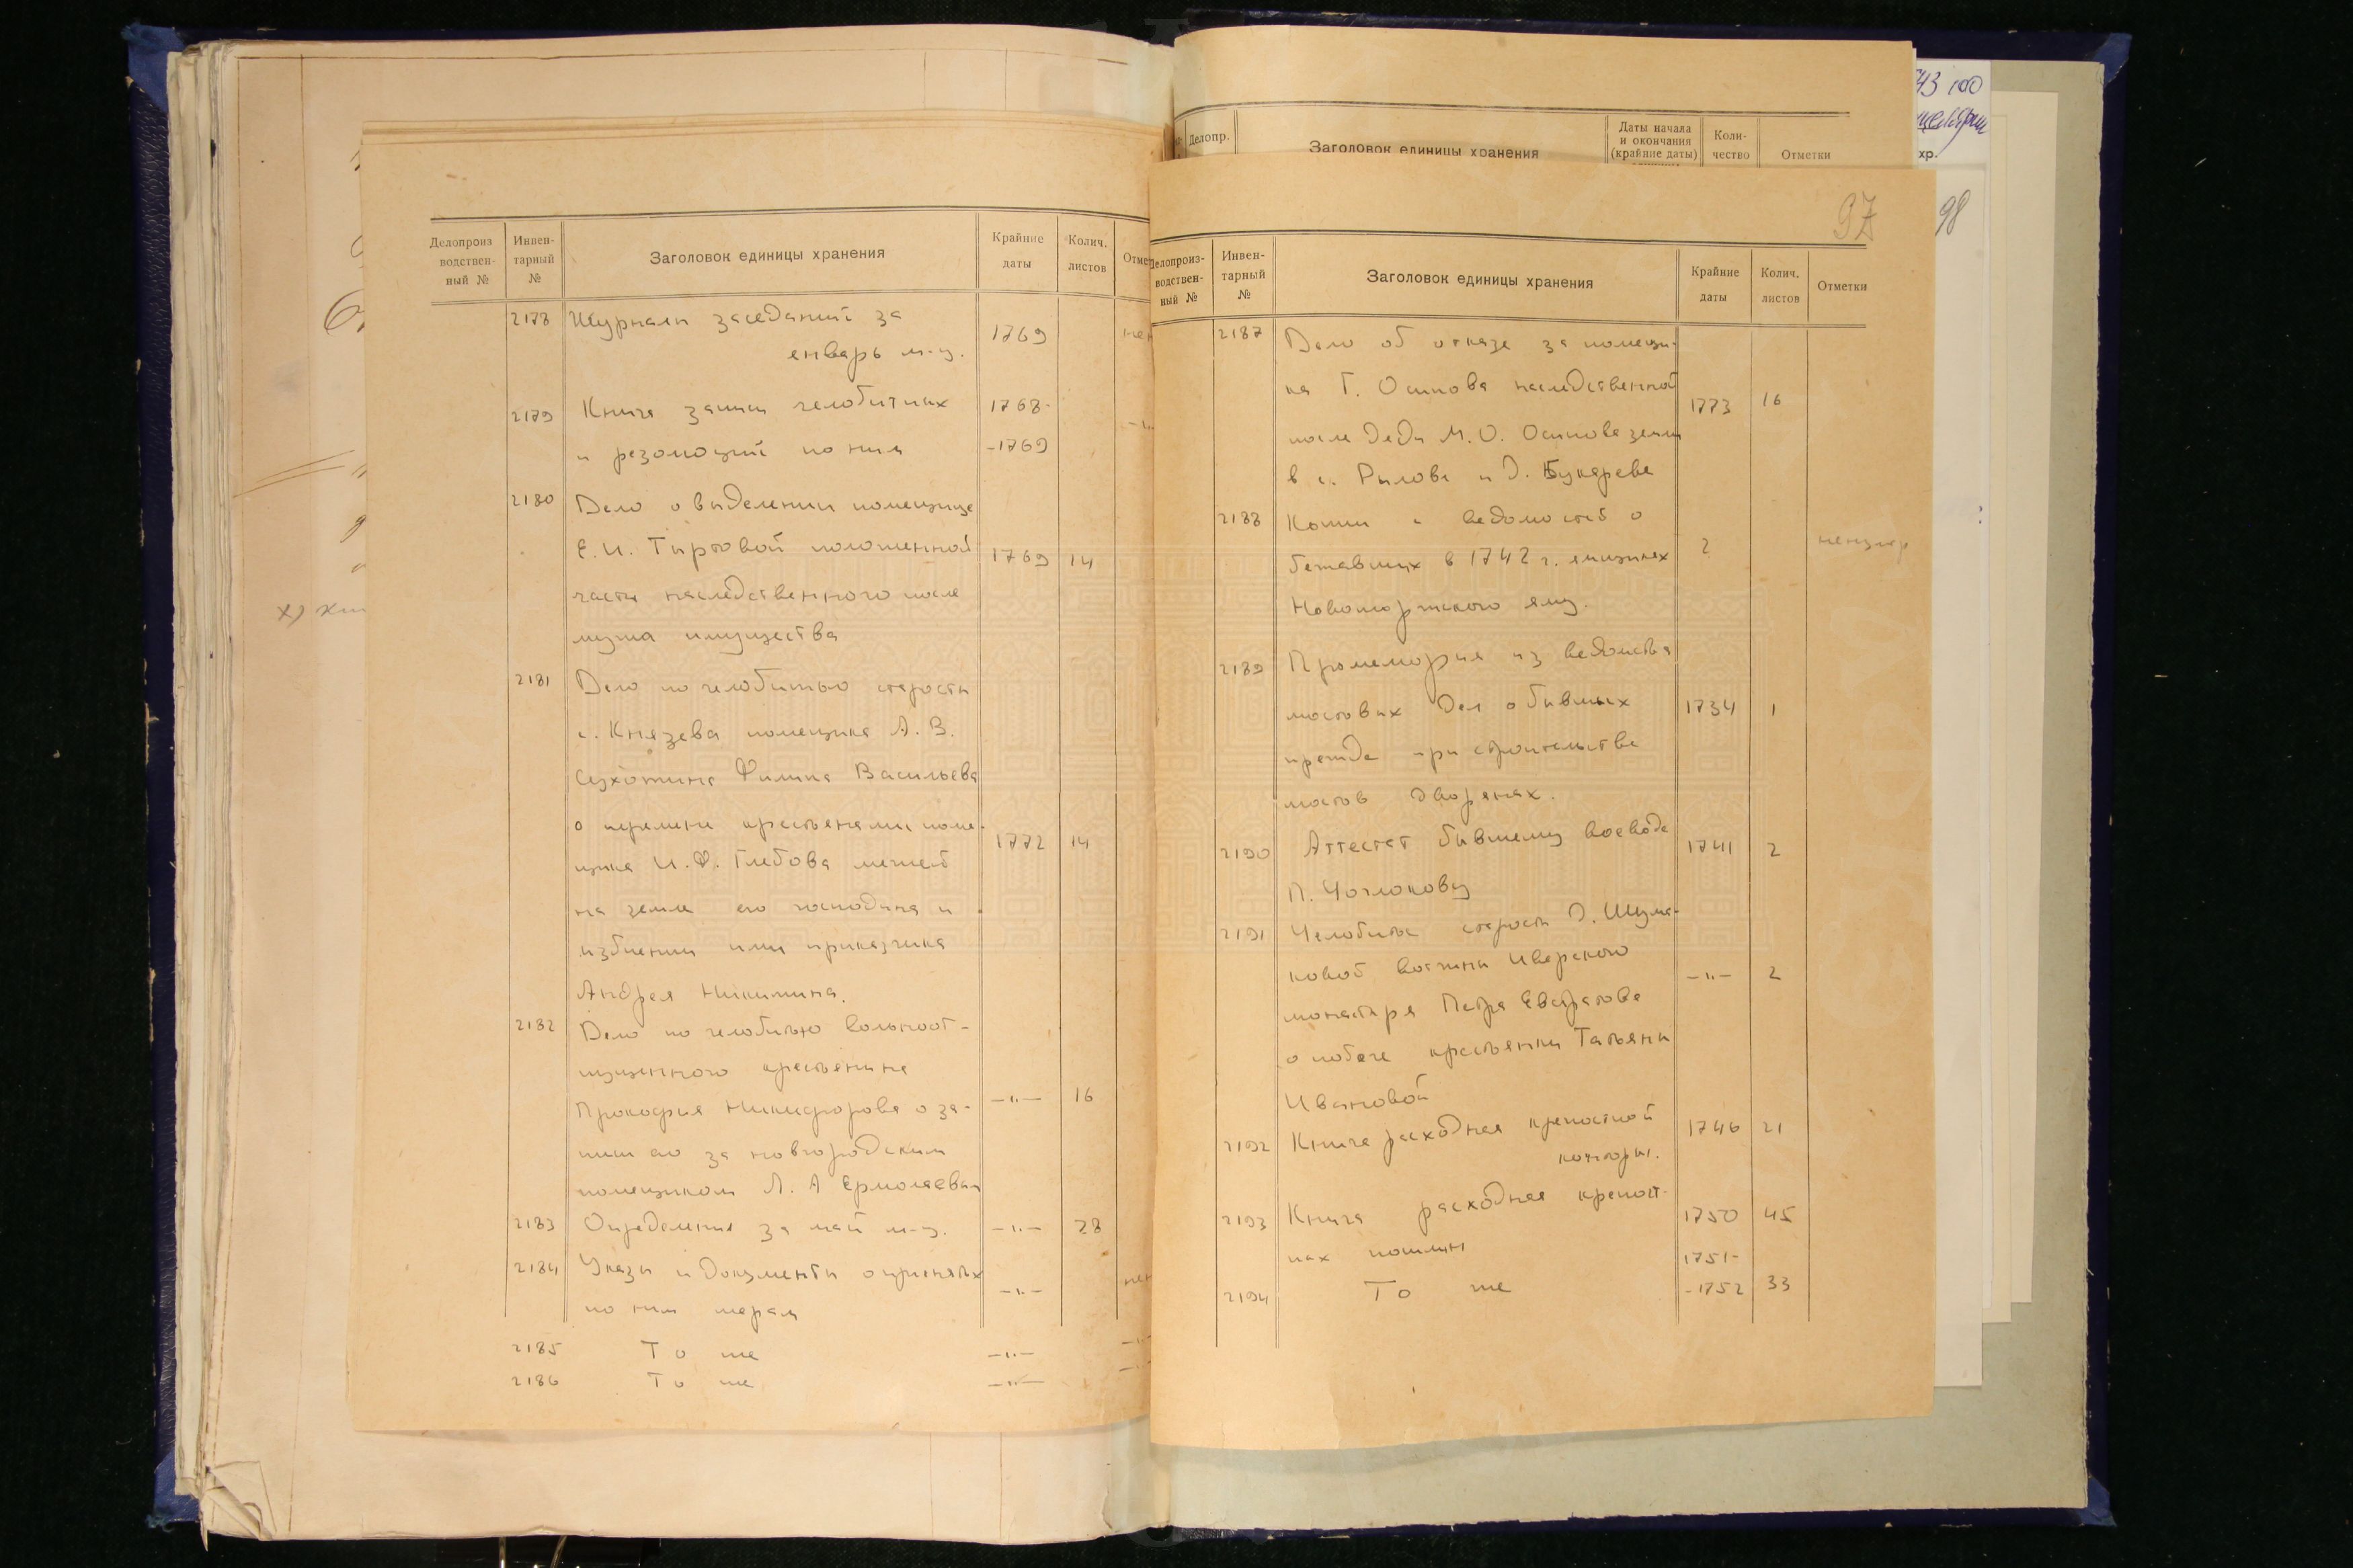 Делопроиз
водствен-
ный №
Инвен-
тарный
№
Заголовок единицы хранения
Крайние
даты
Колич.
листов
2178 Журналы заседаний за 1769
январь м-ц.
2179 Книга записи челобитных 1768-
и резолюций по ним -1769
2180 Дело о выделении помещице
Е.И. Тыртовой положенной 1769 14
части наследственного после
мужа имущества
2181 Дело по челобитью старосты
с. Князева помещика А.В.
Сухотина Филипа Васильева
о перемене крестьянами поме- 1772 14
щика И.Ф. Глебова межей
на земле его господина и
избиении ими приказчика
Андрея Никитина.
2182 Дело по челобитью вольноот-
пущенного крестьянина
Прокофия Никифорова о за- -"- 16
писи его за новгородским
помещиком Л. А Ермолаевым
2183 Определения за май м-ц. -"- 28
2184 Указы и документы о принятых
по ним мерам -"-
2185 То же -"-
2186 То же -"-
Делопр.
Заголовок единицы хранения
Даты начала
и окончания
(крайние даты)
Коли-
чество
Отметки
хр.
97
98
Делопроиз-
водствен-
ный №
Инвен-
тарный
№
Заголовок единицы хранения
Крайние
даты
Колич.
листов
Отметки
2187 Дело об отказе за помещи-
ка Г. Осипова наследственной 1773 16
после деда М.О. Осипова земли
в с. Рылове и д. Букареве
2188 Копии с ведомостей о
бежавших в 1742 г. ямщиках ?
Новоторжского яму.
2189 Промемория из ведомства
мостовых дел о бывших 1734 1
прежде при строительстве
мостов дворянах.
2190 Аттестат бывшему воеводе 1741 2
П. Чоглокову
2191 Челобитье старосты Д. Шума-
ковой вотчины Иверского -"- 2
монастыря Петра Евстратова
о побеге крестьянки Татьяны
Ивановой
2192 Книга расходная крепостной 1746 21
конторы.
2193 Книга расходная крепост- 1750 45
ных пошлин
2194 То же 1751-
-1752 33